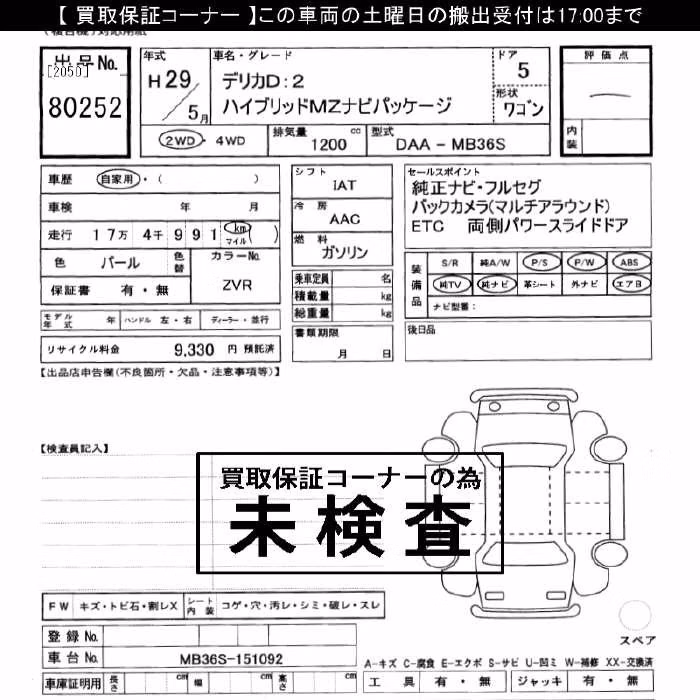 【 買取保証コーナー 】この車両の土曜日の搬出受付は17:00まで
出品No.
[2050]
80252
年式
H 29 / 5月
車名・グレード
デリカD:2
ハイブリッドMZナビパッケージ
ドア
5
形状
ワゴン
2WD ・ 4WD
排気量
1200 cc
型式
DAA - MB36S
評価点
内装
車歴 自家用・( )
車検 年 月
走行 17万 4千 991 (km マイル)
色 パール 色替
カラーNo.
ZVR
保証書 有・無
シフト
IAT
冷房
AAC
燃料
ガソリン
乗車定員 名
積載量 kg
総重量 kg
書類期限
月 日
セールスポイント
純正ナビ・フルセグ
バックカメラ(マルチアラウンド)
ETC 両側パワースライドドア
装備品
S/R 純A/W P/S P/W ABS
純TV 純ナビ 革シート 外ナビ エアB
ナビ型番:
後日品
モデル年式 年 ハンドル 左・右 ディーラー・並行
リサイクル料金 9,330 円 預託済
【出品店申告欄(不良箇所・欠品・注意事項等)】
【検査員記入】
買取保証コーナーの為
未検査
FW キズ・トビ石・割レX シート内装 コゲ・穴・汚レ・シミ・破レ・スレ
登録No.
車台No. MB36S-151092
車庫証明用 長さ cm 幅 cm 高さ cm
スペア
A-キズ C-腐食 E-エクボ S-サビ U-凹ミ W-補修 XX-交換済
工具 有・無 ジャッキ 有・無